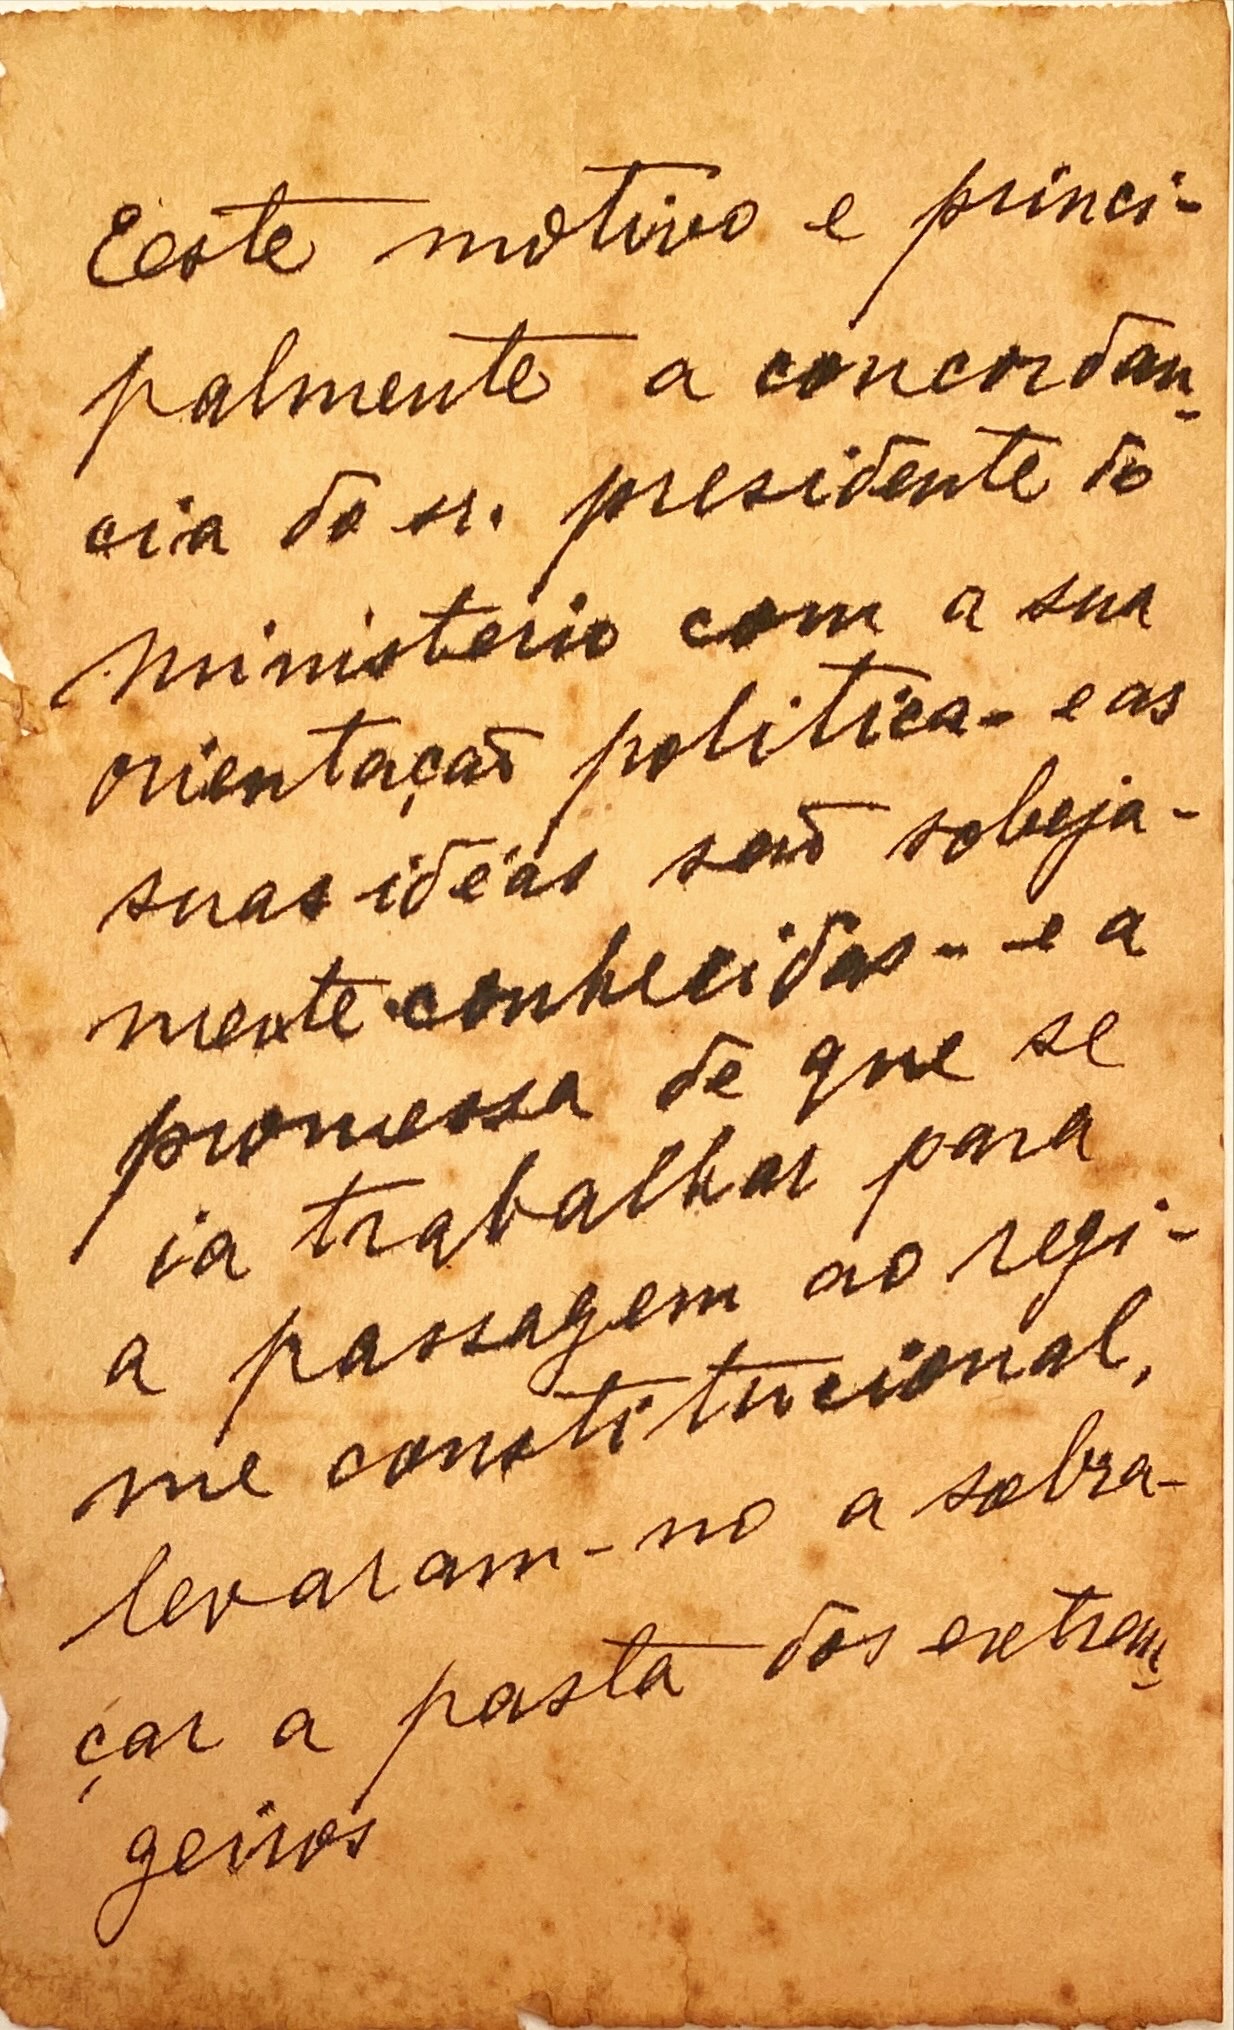 Eeste motivo e princi-
palmente a concordan-
cia do sr. presidente do
Ministerio com a sua
orientação politica - e as
suas idéas são sobeja-
mente conhecidas - - e a
promessa de que se
ia trabalhar para
a passagem ao regi-
me constitucional,
levaram-no a sobra-
çar a pasta dos extran-
geiros